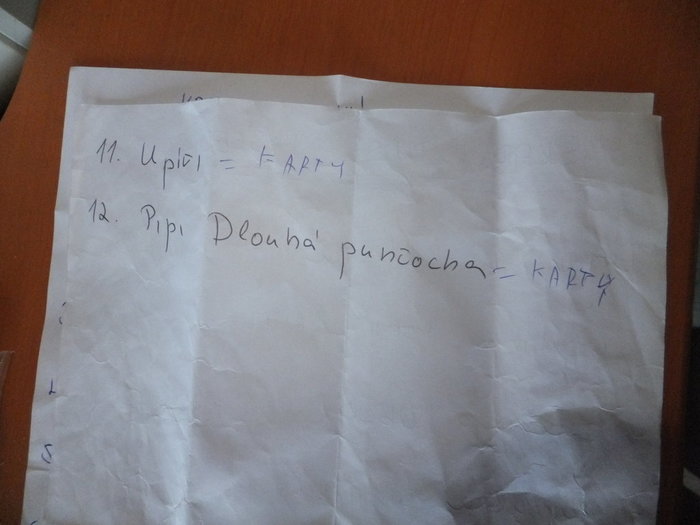 11. Upíři = KARTY
12. Pipi Dlouhá punčocha = KARTY